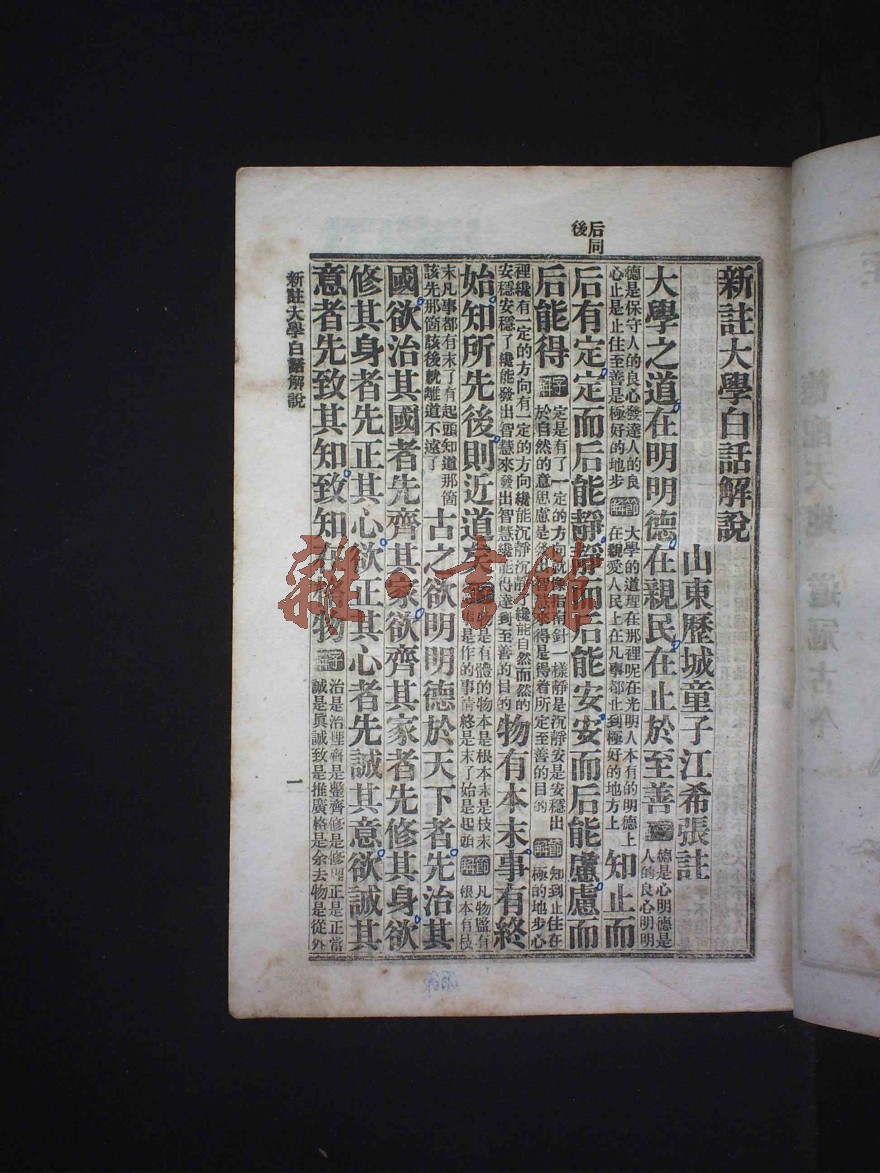 后同
後
新註大學白話解說
山東歷城童子江希張註
大學之道在明明德在親民在止於至善 德是心明德是人的良心明明
德是保守人的良心發達人的良心止是止住至善是極好的地步 節解 大學的道理在那裡呢在光明人本有的明德上在親愛人民上在凡事都止到極好的地方上 知止而
后有定定而后能靜靜而后能安安而后能慮慮而
后能得 字解 定是有了一定的方向就像指南針一樣靜是沉靜安是安穩出於自然的意思慮是發出智慧來得是得着所定至善的目的 節解 知到止住在極的地步心
裡纔有一定的方向有一定的方向纔能沉靜沉靜了纔能自然而然的安穩安穩了纔能發出智慧來發出智慧纔能得達到至善的目的 物有本末事有終
始知所先後則近道矣 物是有體的物本是根本末是枝末事是作的事情終是末了始是起頭 節解 凡物盡有根本有枝
末凡事都有末了有起頭知道那箇該先那箇該後就離道不遠了 古之欲明明德於天下者先治其
國欲治其國者先齊其家欲齊其家者先修其身欲
修其身者先正其心欲正其心者先誠其意欲誠其
意者先致其知致知在格物 字解 治是治理齊是整齊修是修理正是正當誠是眞誠致是推廣格是余去物是從外
新註大學白話解說
一
雜·書館
德配天地 道冠古今